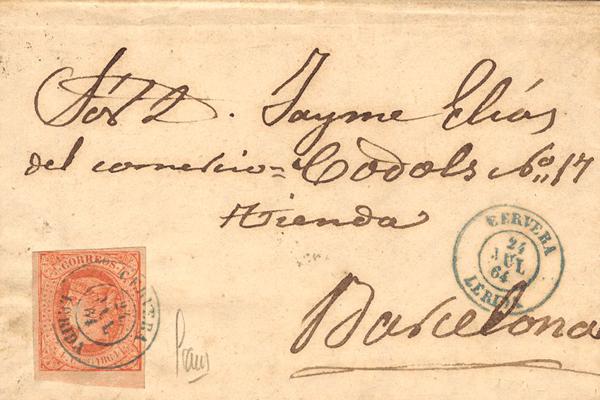 Sor D. Jayme Elías
del comercio = Codols No. 17
Tienda
Barcelona
CERVERA
24
JUL
64
LERIDA
CORREOS
CERVERA
24
JUL
64
LERIDA